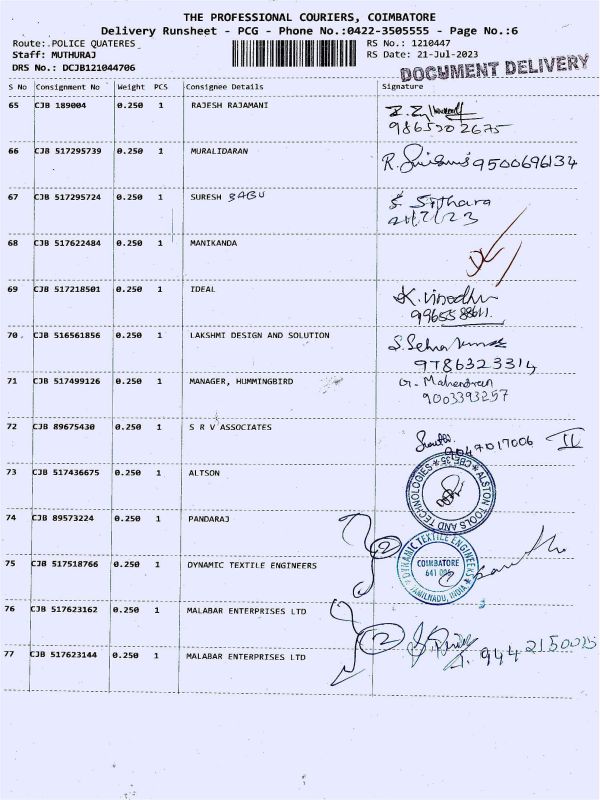 THE PROFESSIONAL COURIERS, COIMBATORE
Delivery Runsheet - PCG - Phone No.:0422-3505555 - Page No.:6
Route: POLICE QUATERES RS No.: 1210447
Staff: MUTHURAJ RS Date: 21-Jul-2023
DRS No.: DCJB121044706 DOCUMENT DELIVERY
S No Consignment No Weight PCS Consignee Details Signature
65 CJB 189004 0.250 1 RAJESH RAJAMANI
9865202675
66 CJB 517295739 0.250 1 MURALIDARAN R. 9500696134
67 CJB 517295724 0.250 1 SURESH BABU S. Sithara
21/7/23
68 CJB 517622484 0.250 1 MANIKANDA
69 CJB 517218501 0.250 1 IDEAL K. Vinodhu
9965588611.
70 CJB 516561856 0.250 1 LAKSHMI DESIGN AND SOLUTION
9786323314
71 CJB 517499126 0.250 1 MANAGER, HUMMINGBIRD G. Mahendran
9003393257
72 CJB 89675430 0.250 1 S R V ASSOCIATES
9047017006 II
73 CJB 517436675 0.250 1 ALTSON
ALSTON TOOLS AND TECHNOLOGIES * CBE-35 *
74 CJB 89573224 0.250 1 PANDARAJ
2
75 CJB 517518766 0.250 1 DYNAMIC TEXTILE ENGINEERS
DYNAMIC TEXTILE ENGINEERS
COIMBATORE
TAMILNADU, INDIA
76 CJB 517623162 0.250 1 MALABAR ENTERPRISES LTD
2
77 CJB 517623144 0.250 1 MALABAR ENTERPRISES LTD